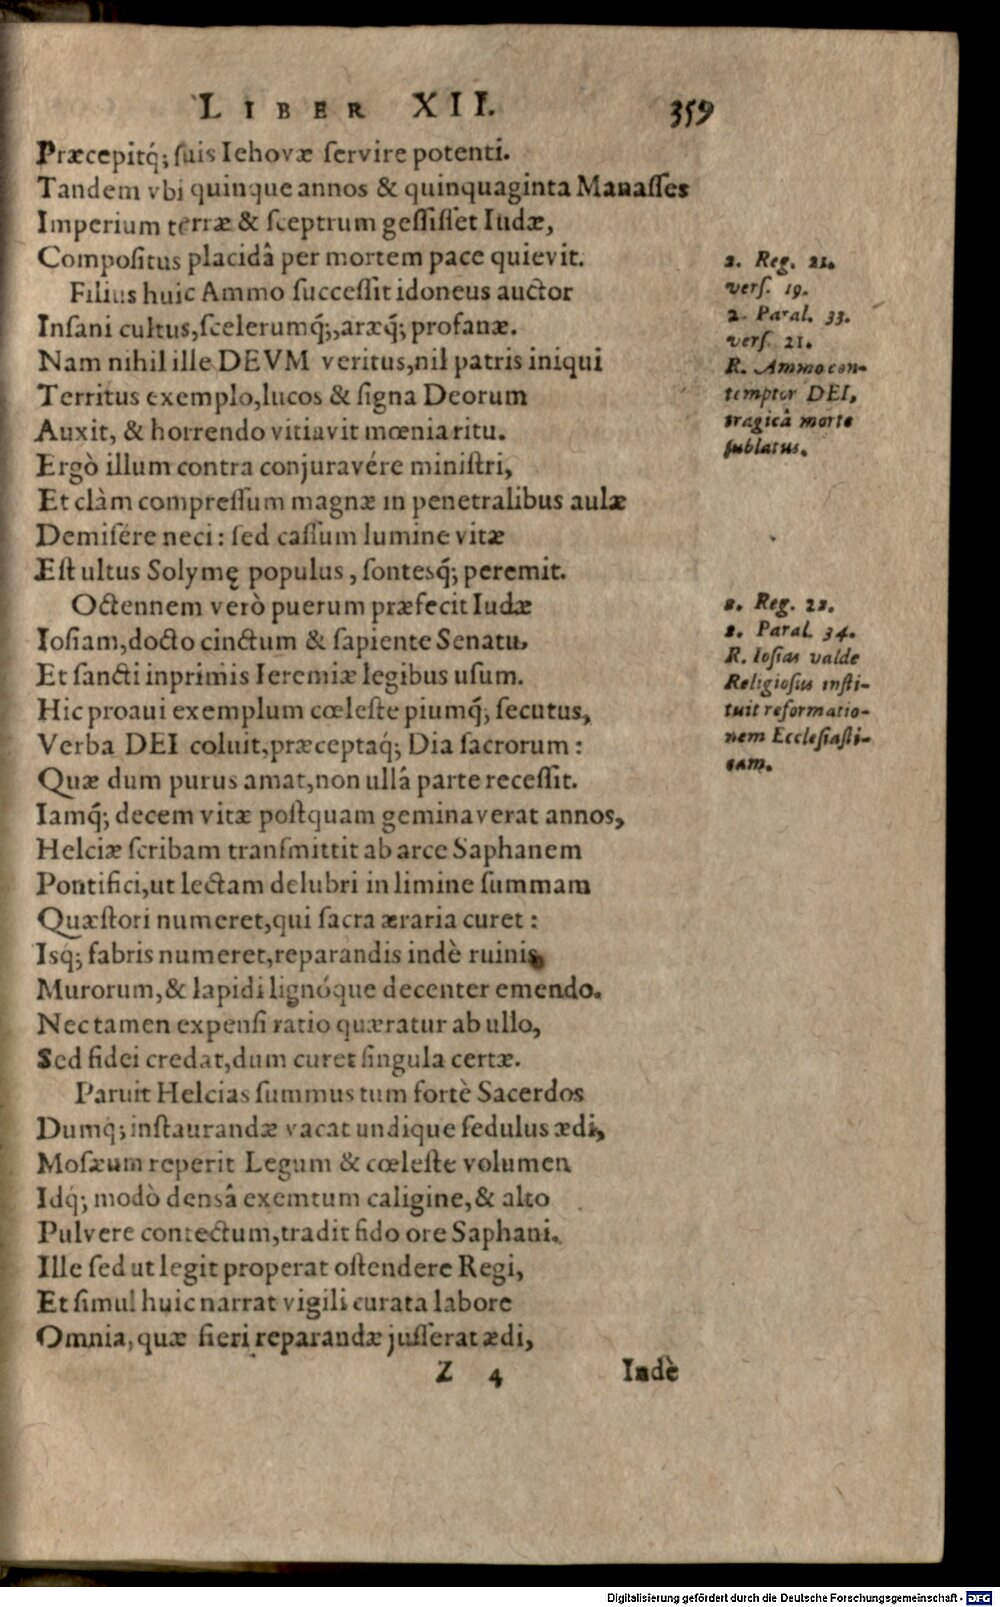 LIBER XII. 359
Præcepitq́; ſuis Iehovæ ſervire potenti.
Tandem vbi quinque annos & quinquaginta Manaſſes
Imperium terræ & ſceptrum geſſiſſet Iudæ,
Compoſitus placidâ per mortem pace quievit.
Filius huic Ammo ſucceſſit idoneus auctor
Inſani cultus, ſcelerumq́;, aræq́; profanæ.
Nam nihil ille DEVM veritus, nil patris iniqui
Territus exemplo, lucos & ſigna Deorum
Auxit, & horrendo vitiavit mœnia ritu.
Ergò illum contra conjuravére miniſtri,
Et clàm compreſſum magnæ in penetralibus aulæ
Demiſére neci: ſed caſſum lumine vitæ
Eſt ultus Solymę populus, ſontesq́; peremit.
Octennem verò puerum præfecit Iudæ
Ioſiam, docto cinctum & ſapiente Senatu,
Et ſancti inprimis Ieremiæ legibus uſum.
Hic proaui exemplum cœleſte piumq́; ſecutus,
Verba DEI coluit, præceptaq́; Dia ſacrorum:
Quæ dum purus amat, non ullâ parte receſſit.
Iamq́; decem vitæ poſtquam geminaverat annos,
Helciæ ſcribam tranſmittit ab arce Saphanem
Pontifici, ut lectam delubri in limine ſummam
Quæſtori numeret, qui ſacra æraria curet:
Isq́; fabris numeret, reparandis indè ruinis,
Murorum, & lapidi lignóque decenter emendo.
Nec tamen expenſi ratio quæratur ab ullo,
Sed fidei credat, dum curet ſingula certæ.
Paruit Helcias ſummus tum fortè Sacerdos
Dumq́; inſtaurandæ vacat undique ſedulus ædi,
Moſæum reperit Legum & cœleſte volumen
Idq́; modò densâ exemtum caligine, & alto
Pulvere contectum, tradit fido ore Saphani.
Ille ſed ut legit properat oſtendere Regi,
Et ſimul huic narrat vigili curata labore
Omnia, quæ fieri reparandæ juſſerat ædi,
Z 4 Indè
2. Reg. 21.
verſ. 19.
2. Paral. 33.
verſ. 21.
R. Ammo con-
temptor DEI,
tragicâ morte
ſublatus.
2. Reg. 22.
2. Paral. 34.
R. Ioſias valde
Religioſus inſti-
tuit reformatio-
nem Eccleſiaſti-
cam.
Digitalisierung gefördert durch die Deutsche Forschungsgemeinschaft - DFG